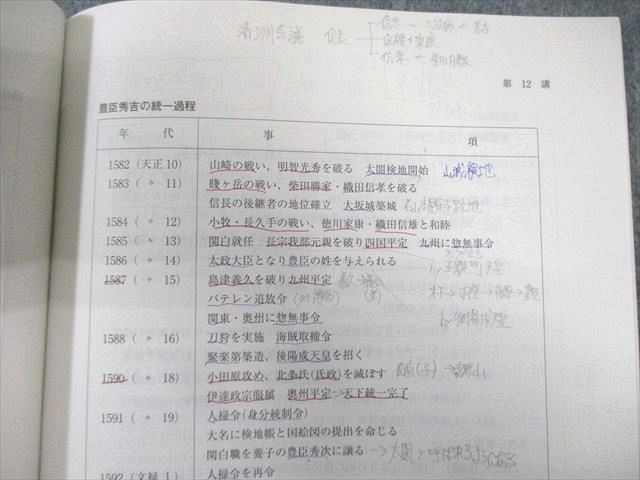 清洲会議 信長 信忠 — 三法師 ← 秀吉
信雄 + 家康
信孝 ← 柴田勝家
第 12 講
豊臣秀吉の統一過程
年 代 事 項
1582 (天正 10) 山崎の戦い、明智光秀を破る 太閤検地開始 山城検地
1583 ( 〃 11) 賤ヶ岳の戦い、柴田勝家・織田信孝を破る
信長の後継者の地位確立 大坂城築城 石山本願寺跡地
1584 ( 〃 12) 小牧・長久手の戦い、徳川家康・織田信雄と和睦
1585 ( 〃 13) 関白就任 長宗我部元親を破り四国平定 九州に惣無事令
1586 ( 〃 14) 太政大臣となり豊臣の姓を与えられる
by 正親町天皇
1587 ( 〃 15) 島津義久を破り九州平定
木下→羽柴→ →豊臣
バテレン追放令
by 後陽成天皇
関東・奥州に惣無事令
1588 ( 〃 16) 刀狩を実施 海賊取締令
聚楽第築造、後陽成天皇を招く
1590 ( 〃 18) 小田原攻め、北条氏(氏政)を滅ぼす 氏直(子)→高野山
伊達政宗服属 奥州平定⇒天下統一完了
1591 ( 〃 19) 人掃令(身分統制令)
大名に検地帳と国絵図の提出を命じる
関白職を養子の豊臣秀次に譲る →太閤と呼ばれるようになる
1592 (文禄 1) 人掃令を再令